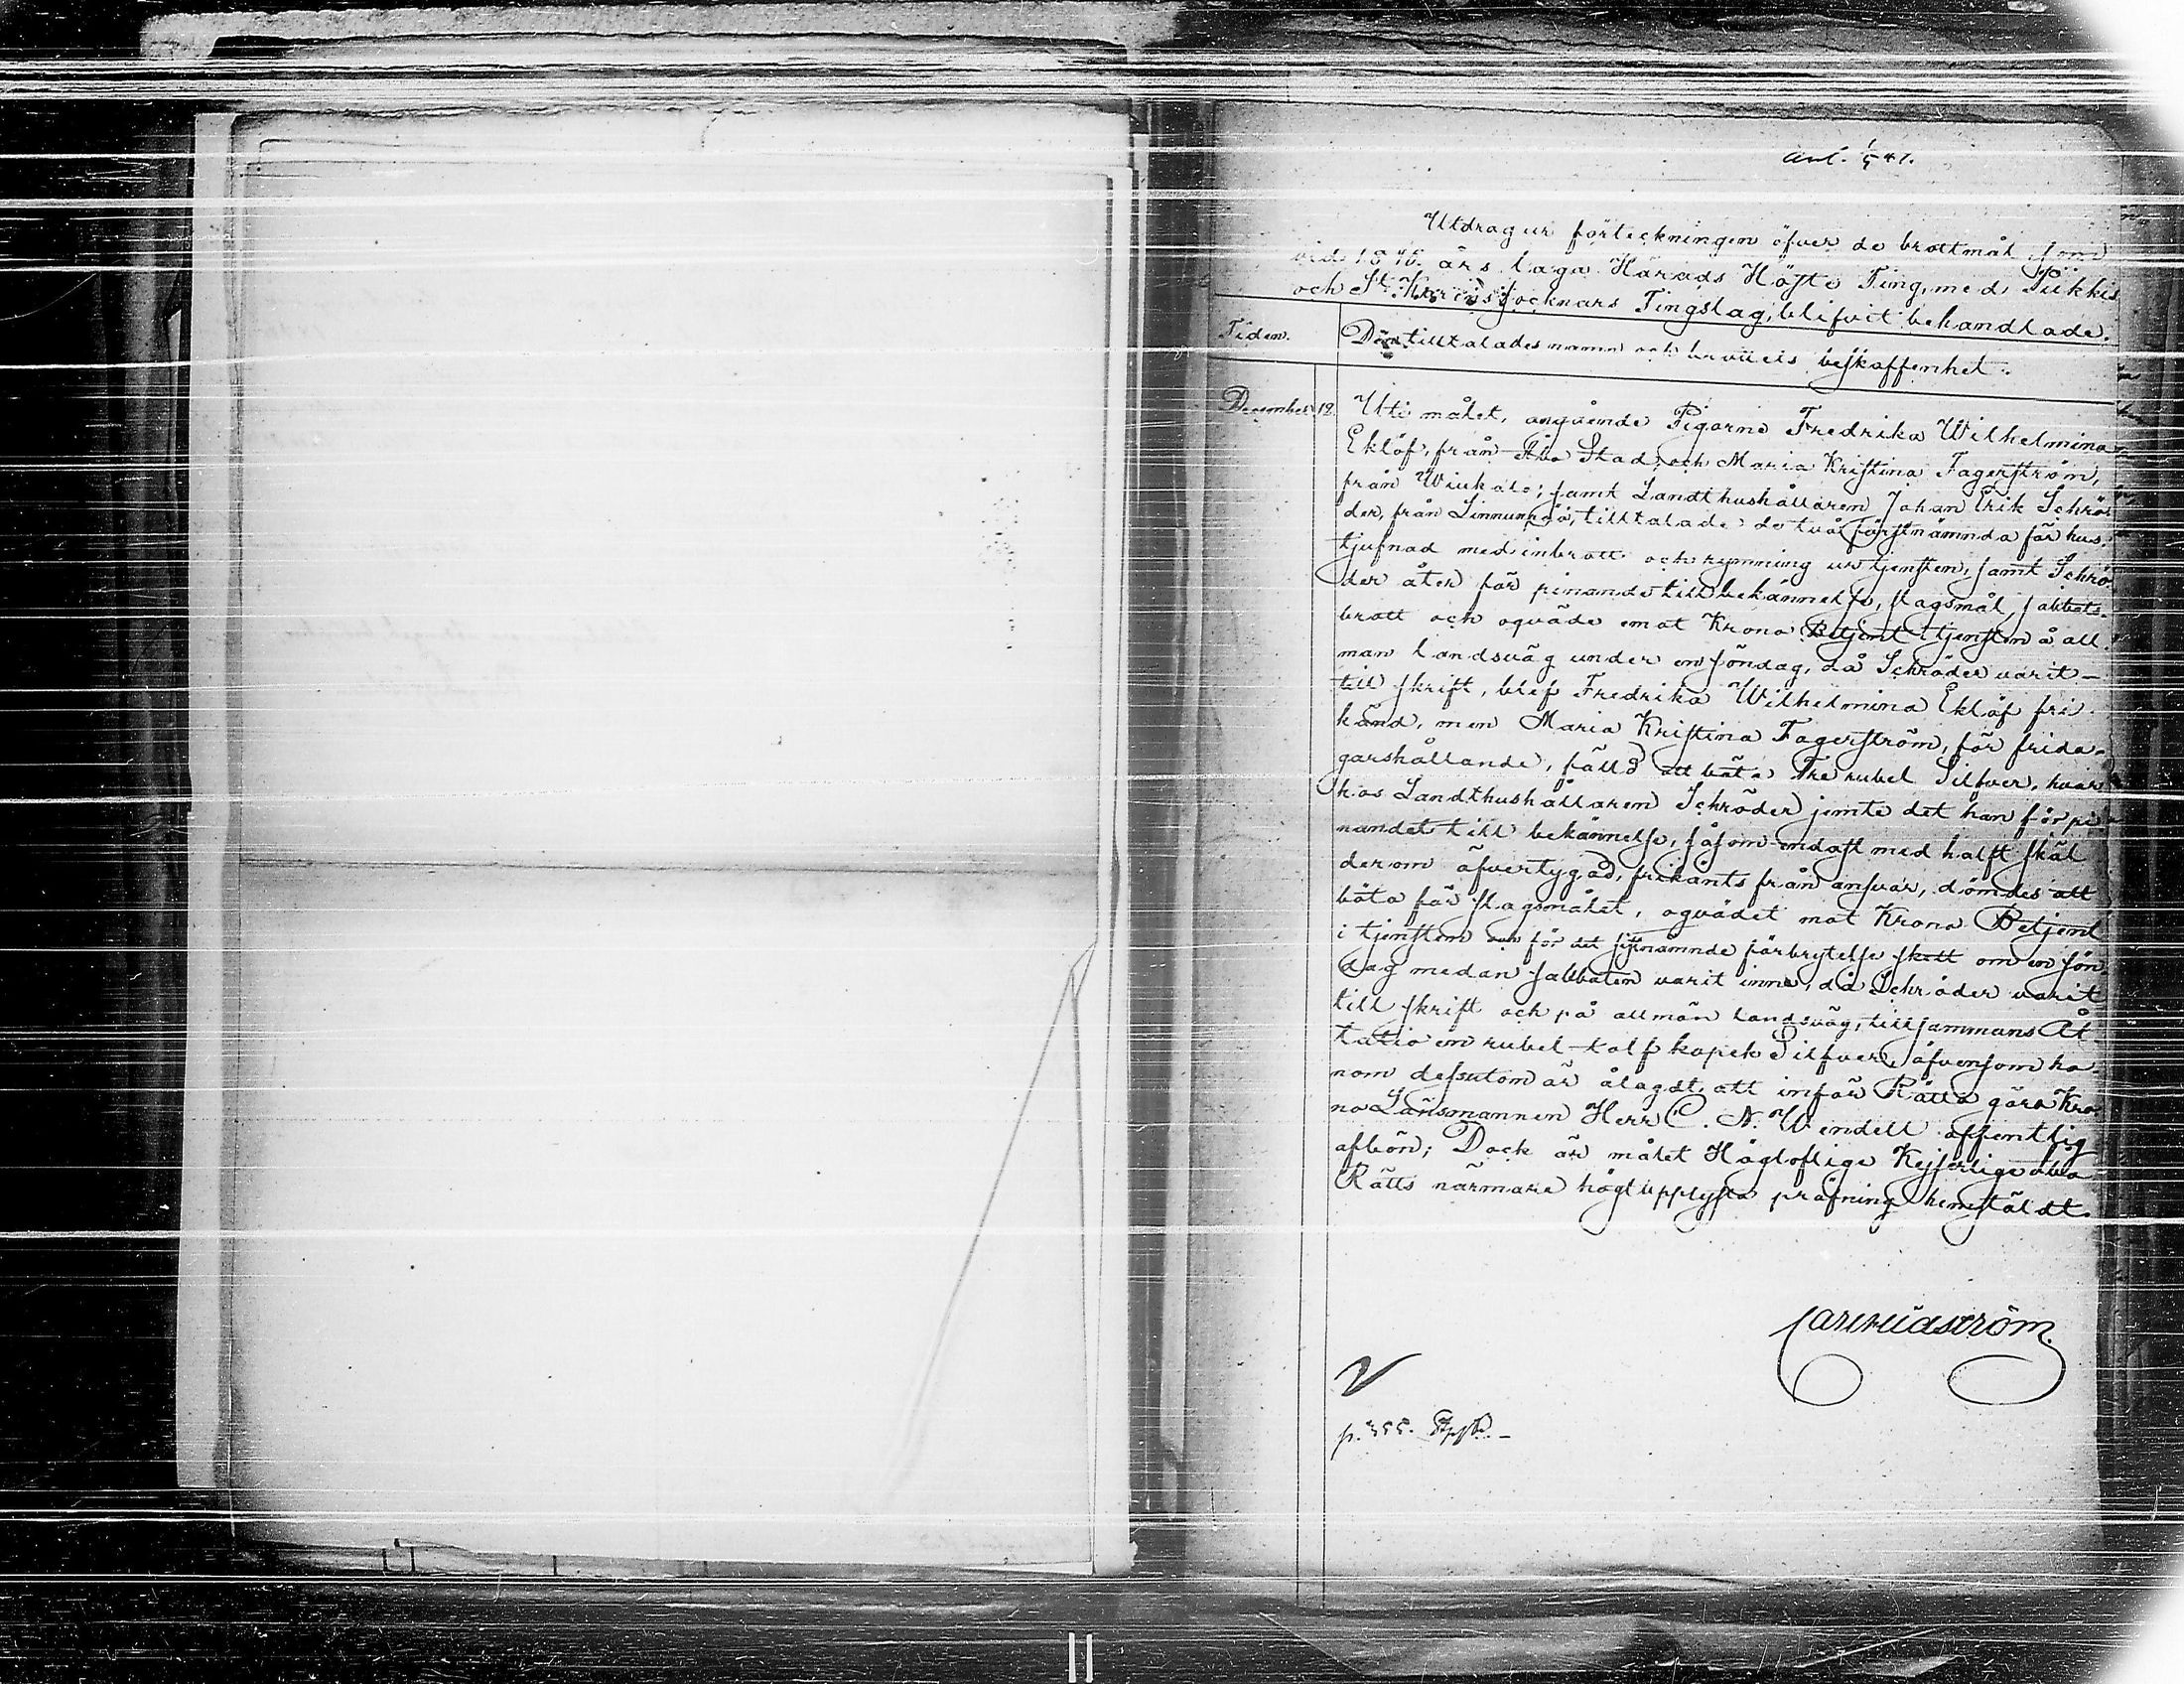 Ank. 1/5 47.
Utdrag ur förteckningen öfver de brottmål, som
vid 1846 års laga Härads Höste Ting, med Piikkis
och St Karins socknars Tingslag, blifvit behandlade.
Tiden. Den tilltalades namn och brottets beskaffenhet.
December 12. Uti målet, angående Pigorna Fredrika Wilhelmina
Eklöf, från Åbo Stad, och Maria Kristina Fagerström,
från Wiukalo; samt Landthushållaren Johan Erik Schrö-
der, från Linnunpää, tilltalade: de två förstnämnda för hus-
tjufnad med inbrott och rymning ur tjensten, samt Schrö-
der åter för pinande till bekännelse, slagsmål, sabbats-
brott och oqväde emot Krono Betjent i tjensten å all-
män landsväg under en söndag, då Schröder varit
till skrift, blef Fredrika Wilhelmina Eklöf fri-
känd, men Maria Kristina Fagerström, för frida-
garshållande, fälld att böta Tre rubel Silfver, hvar-
hos Landthushållaren Schröder jemte det han för pi-
nandet till bekännelse, såsom endast med halft skäl
derom öfvertygad, frikänts från ansvar, dömdes att
böta för slagsmålet, oqvädet mot Krono Betjent
i tjensten och för det sistnämnde förbrytelse skett om en sön-
dag medan sabbaten varit inne, då Schröder varit
till skrift och på allmän landsväg, tillsammans Åt-
tatio en rubel tolf kopek Silfver, äfvensom ho-
nom dessutom är ålagdt, att inför Rätta göra Kro-
no Länsmannen Herr C. N. Wendell offentlig
afbön; Dock är målet Högloflige Kejserlige Åbo
Rätts närmare högtupplysta pröfning hemstäldt.
Carl Widström.
p. 355.